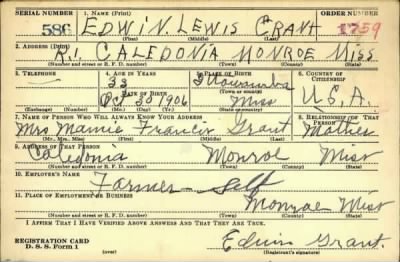 SERIAL NUMBER 1. NAME (Print) ORDER NUMBER
586 EDWIN. LEWIS GRANT 1759
(First) (Middle) (Last)
2. ADDRESS (Print)
R.1. CALEDONIA MONROE MISS
(Number and street or R. F. D. number) (Town) (County) (State)
3. TELEPHONE 4. AGE IN YEARS 5. PLACE OF BIRTH 6. COUNTRY OF CITIZENSHIP
33 Itawamba
DATE OF BIRTH
Oct 30 1906 Miss U.S.A.
(Exchange) (Number) (Mo.) (Day) (Yr.) (State or country)
7. NAME OF PERSON WHO WILL ALWAYS KNOW YOUR ADDRESS 8. RELATIONSHIP OF THAT PERSON
Mrs Mamie Francis Grant Mother
(Mr., Mrs., Miss) (First) (Middle) (Last)
9. ADDRESS OF THAT PERSON
Caledonia Monroe Miss
(Number and street or R. F. D. number) (Town) (County) (State)
10. EMPLOYER'S NAME
Farmer - Self
11. PLACE OF EMPLOYMENT OR BUSINESS
Monroe Miss
(Number and street or R. F. D. number) (Town) (County) (State)
I AFFIRM THAT I HAVE VERIFIED ABOVE ANSWERS AND THAT THEY ARE TRUE.
REGISTRATION CARD
D. S. S. Form 1 Edwin Grant.
(Registrant's signature)